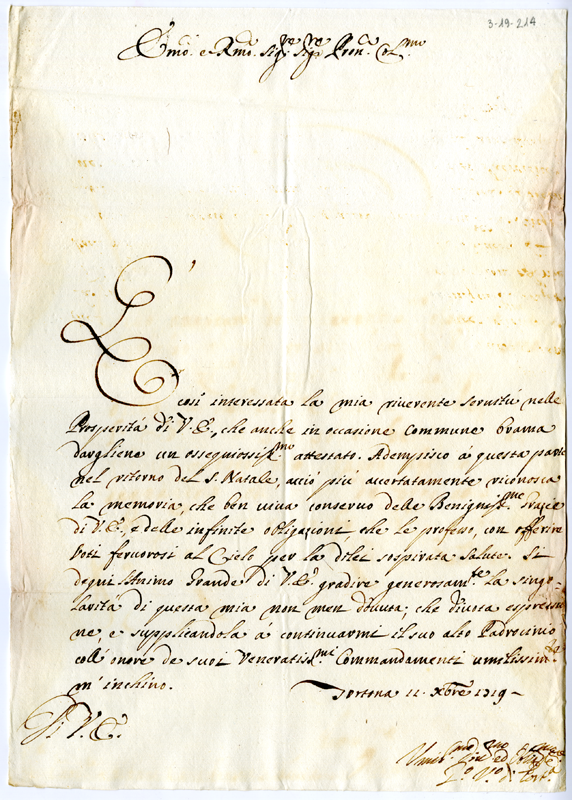 3-19-214
Emo. e Rmo. Sig.re Sig.re Pron. Col.mo
È così interessata la mia riverente servitù nelle
Prosperità di V.E., che anche in occasione commune brama
dargliene un ossequiosiss.mo attestato. Adempisco à questa parte
nel ritorno del S. Natale, acciò più accertatamente riconosca
la memoria, che ben viva conservo delle Benigniss.me Grazie
di V.E., e delle infinite obligazioni che le professo, con offerire
voti fervorosi al Cielo per la di lei sospirata salute. Si
degni l'Animo Grande di V.E. gradire generosam.te la singo-
larità di questa mia non men dovuta, che divota espressio-
ne, e supplicandola à continuarmi il suo alto Padrocinio
coll' onore de suoi Veneratiss.mi Commandamenti umilissim.te
m' inchino. Tortona 11. Xbre 1719
Di V.E.